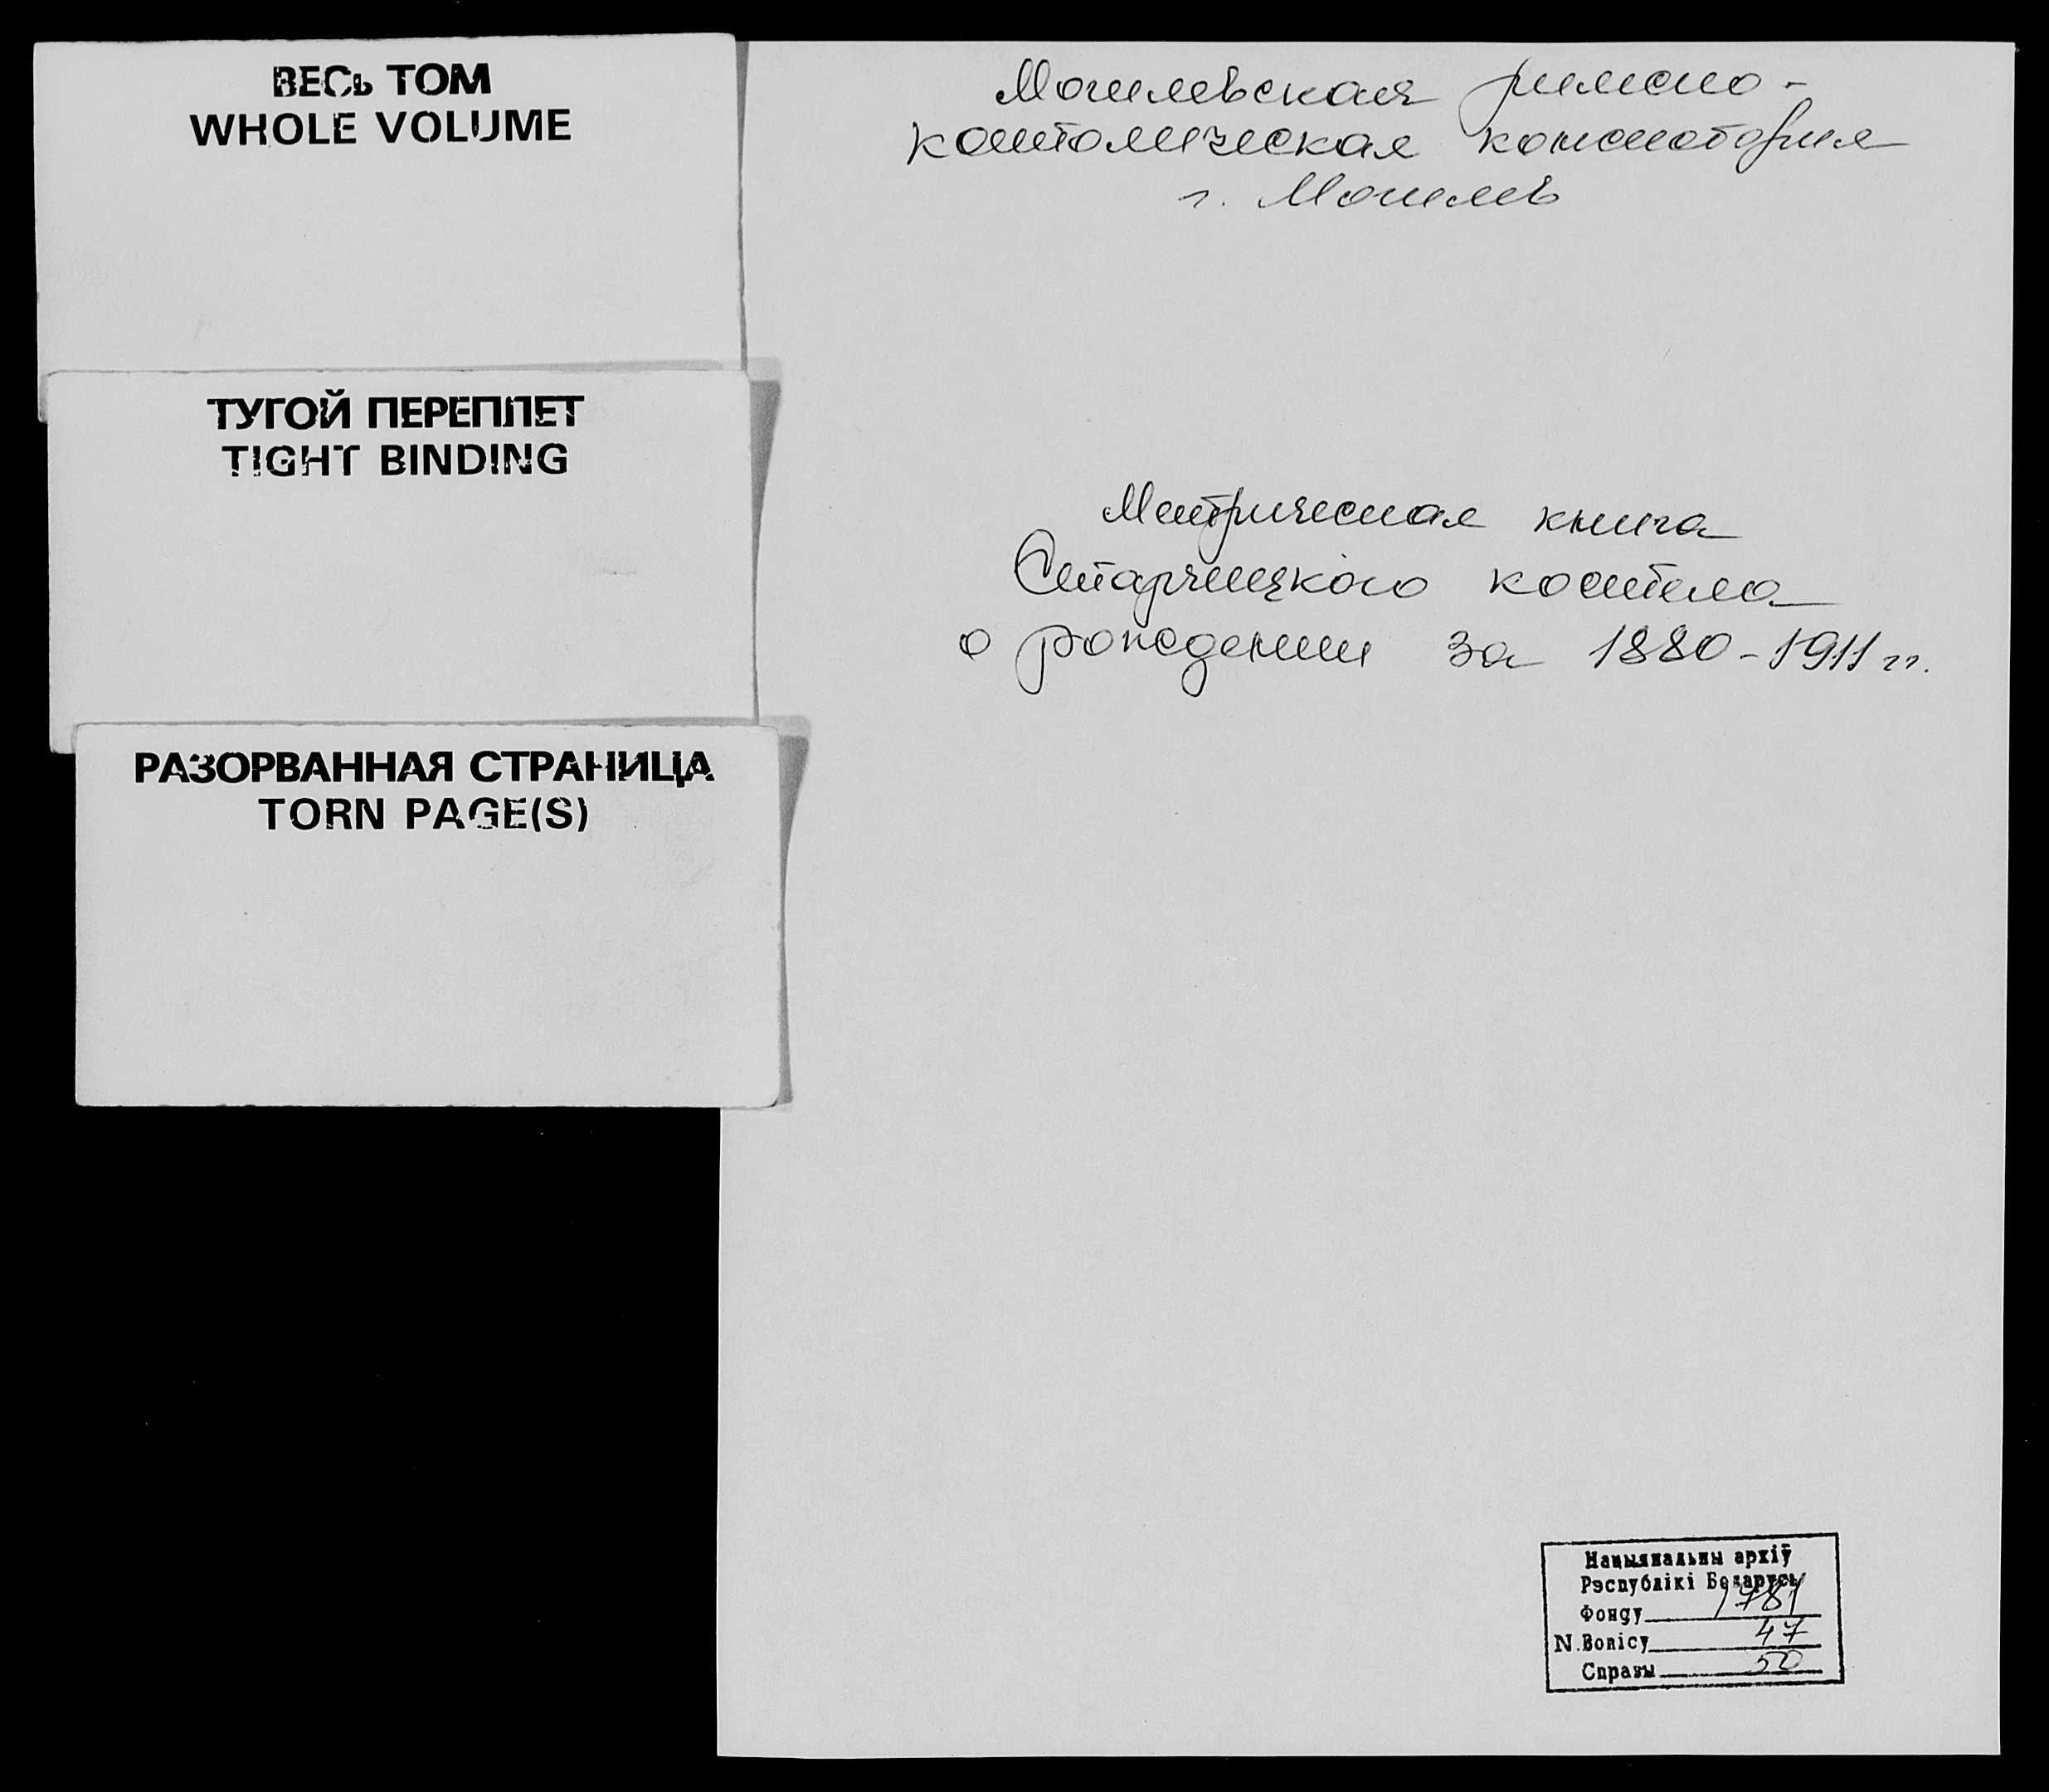 ВЕСЬ ТОМ
WHOLE VOLUME
ТУГОЙ ПЕРЕПЛЕТ
TIGHT BINDING
РАЗОРВАННАЯ СТРАНИЦА
TORN PAGE(S)
Могилевская римско-
католическая консистория
г. Могилев
Метрическая книга
Старчицкого костела
о рождении за 1880-1911 гг.
Нацыянальны архіў
Рэспублікі Беларусь
Фонду 1781
N.Вопісу 47
Справы 50